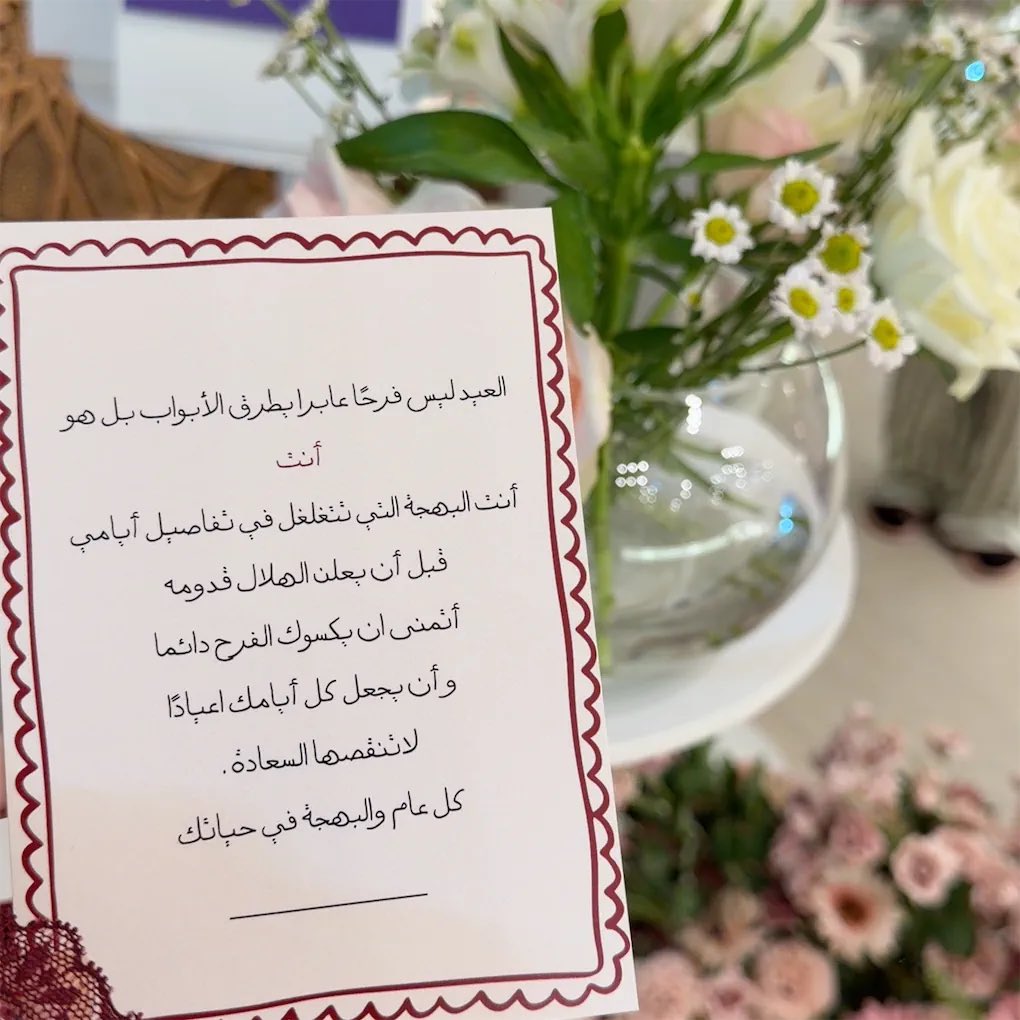 العيد ليس فرحًا عابرا يطرق الأبواب بل هو
أنت
أنت البهجة التي تتغلغل في تفاصيل أيامي
قبل أن يعلن الهلال قدومه
أتمنى ان يكسوك الفرح دائما
و أن يجعل كل أيامك اعيادًا
لاتنقصها السعادة .
كل عام والبهجة في حياتك